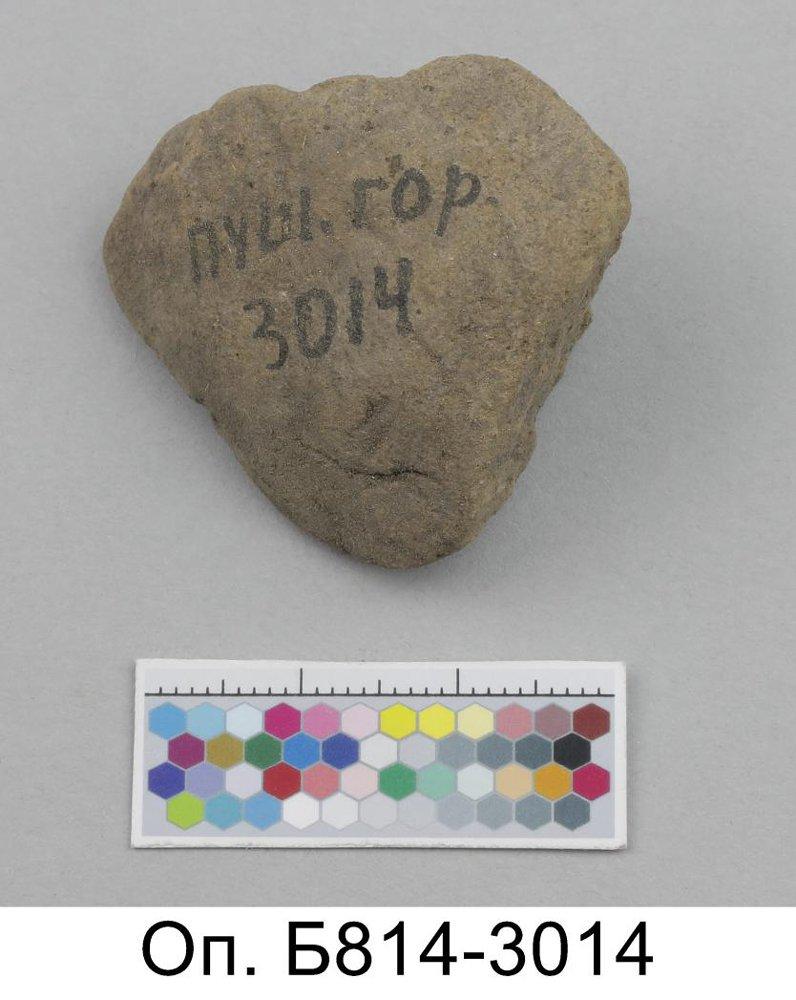 ПУШ. ГОР.
3014
Оп. Б814-3014